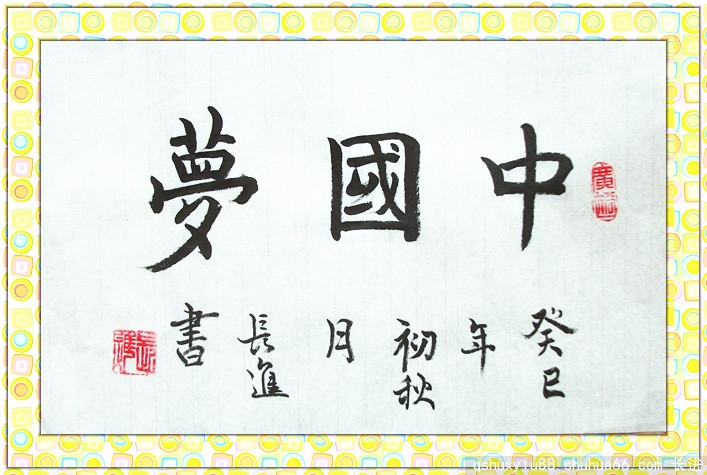 中國夢
癸巳年初秋月長進書
qshuxyju88.shuhua66.com 长进